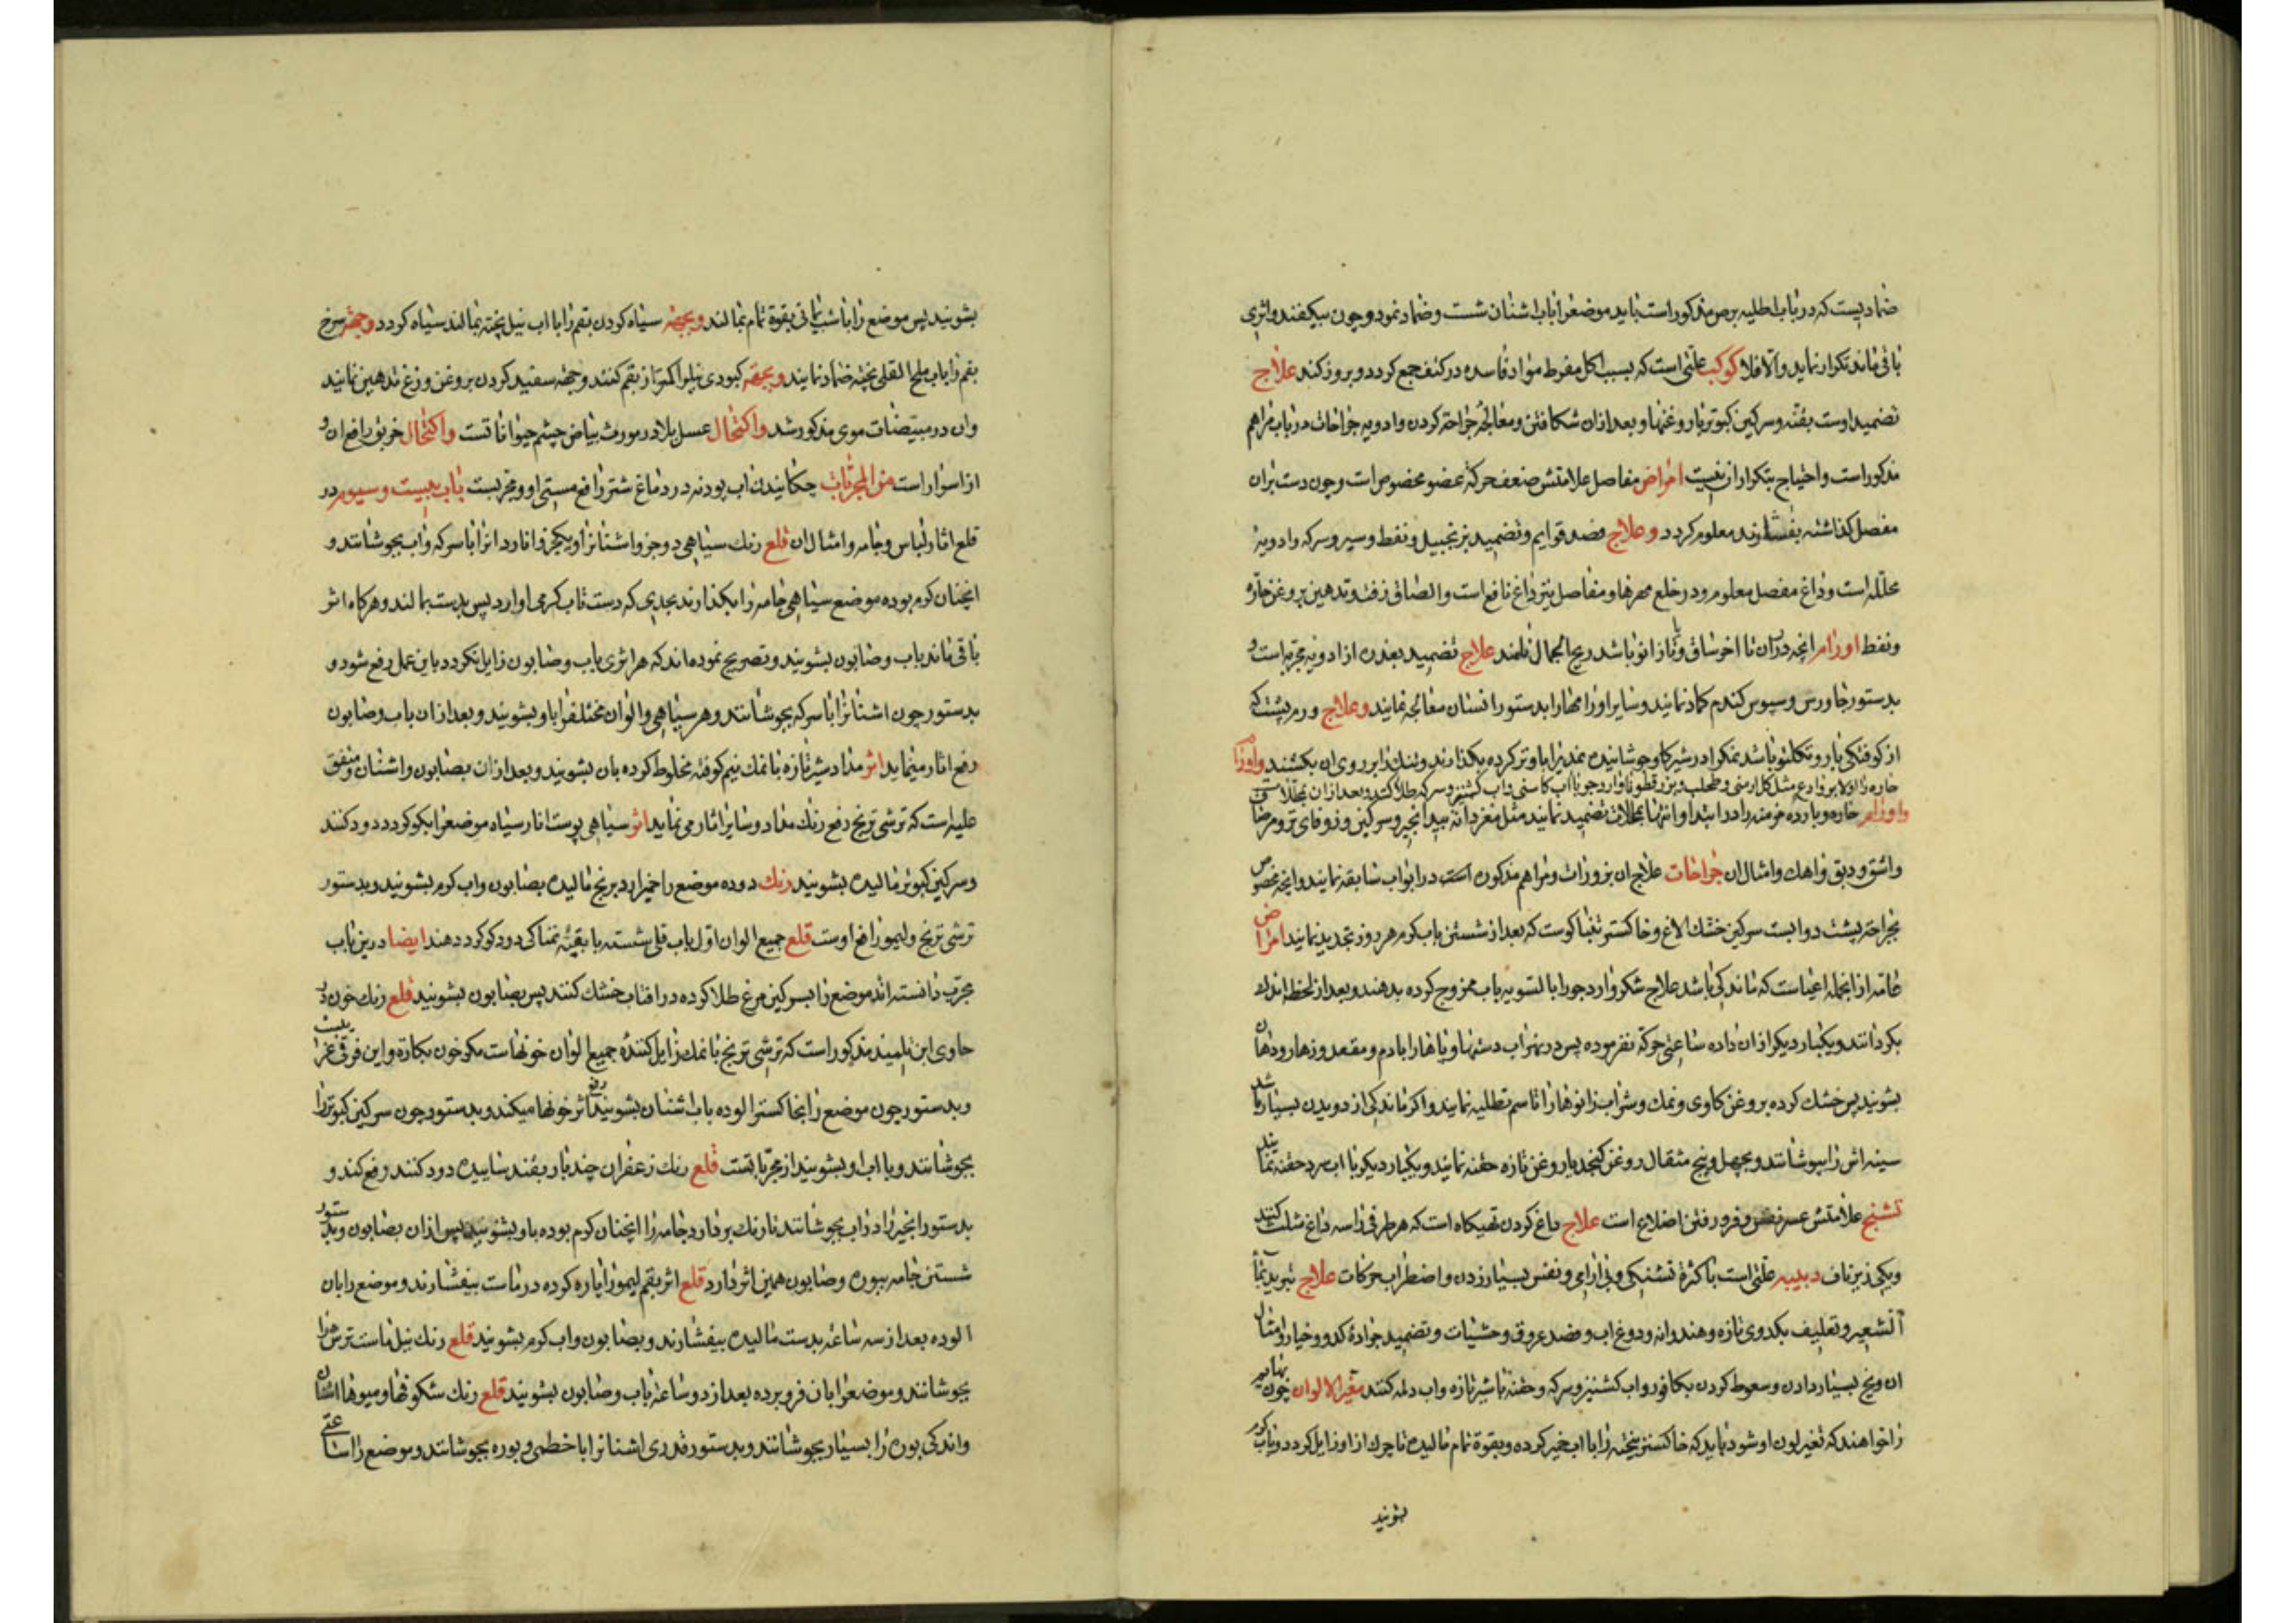 ضمادیست که در باب اطلیه برص مذکور است باید موضعرا باب اشنان شست و ضماد نمود و چون بیکفند و اثری
باقی ماند تکرار نماید والا فلا کوکب علتی است که بسبب اکل مفرط مواد فاسده در کتف جمع کردد و بروز کند علاج
تضمید اوست بقنه و سرکین کبوتر با روغنها و بعد از ان شکافتن و معالجه جراحته کردن و ادویه جراحات در باب مراهم
مذکور است و احتیاج بتکرار ان نیست امراض مفاصل علامتش ضعف حرکة عضو مخصوص است و چون دست بران
مفصل کذاشته بفشارند معلوم کردد و علاج فصد قوایم و تضمید بزنجبیل و نفط و سیر و سرکه و ادویه
محلله است و داغ مفصل معلوم و در خلع مهرها و مفاصل نیز داغ نافع است و الصاق زفت و تدهین بروغن حاره
و نفط اورام انچه دران تا اخر ساق و یا زانو باشد ریح الجمال نامند علاج تضمید بغدد ازادویه مجربه است و
بدستور جاورس و سبوس کندم کماد نمایند و سایر اورامها را بدستور انسان معالجه نمایند و علاج ورم پشت که
از کوفتکی بار و تکلتو باشد نمکرا در شیر کاو جوشانیده نمدیرا باو تر کرده بکذارند و نمد را بر روی ان بکشند و اورام
حاره را اولا بروادع مثل کل ارمنی و طحلب و بزرقطونا و ارد جو با اب کاسنی و اب کشنیز و سرکه طلا کنند و بعد از ان محللات
و اورام حاره و بارده مزمنه را در ابتدا و انتها بمحللات تضمید نمایند مثل مغز دانه بید انجیر و سرکین و زوفای تر و مرصاف
و اشق و دبق و اهک و امثال ان جراحات علاج ان بزرورات و مراهم مذکوره است در ابواب سابقه نمایند و انچه مخصوص
بجراحته پشت دوابست سرکین خشک الاغ و خاکستر تنباکوست که بعد از شستن باب کرم هر روز تجدید نمایند امراض
عامه از انجمله اعیاست که ماندکی باشد علاج شکر و ارد جو را بالسویه باب ممزوج کرده بدهند و بعد از لحظه اندک
بکردانند و یکبار دیکر ازان داده ساعتی حرکة نفرموده پس در نهر اب دستها و پاها را با دم و مقعد و زهار و دهان
بشویند پس خشک کرده بروغن کاوی و نمک و شراب زانوها را تا سم تطلیه نمایند و اکر ماندکی از دویدن بسیار باشد
سینه اش را بپوشانند و بچهل و پنج مثقال روغن کنجد با روغن تازه حقنه نمایند و یکبار دیکر با اب سرد حقنه نمایند
تشنج علامتش عسر نفس و فرو رفتن اضلاع است علاج داغ کردن تهیکاه است که هر طرفی را سه داغ مثلث کنند
و یکی زیر ناف دبیبه علتی است با کثرة تشنکی و بی ارامی و نفس بسیار زدن و اضطراب حرکات علاج تبرید بماء
الشعیر و تعلیف بکدوی تازه و هندوانه و دوغ اب و فصد عروق و حشیات و تضمید جراده کدو و خیار و امثال
ان و یخ بسیار دادن و سعوط کردن بکافور و اب کشنیز و سرکه و حقنه با شیر تازه و اب دلمه کنند تغیر الالوان چون بهایم
را خواهند که تغیر لون او شود باید که خاکستر بیخته را با اب خمیر کرده و بقوة تمام مالیده تا چرک از او زایل کردد و باب کرم
بشویند
بشویند پس موضع را با شب یمانی بقوة تمام بمالند و بجهه سیاه کردن بقم را با اب نیل پخته بمالند سیاه کردد و جهة سرخ
بقم را باب ملح القلی پخته ضماد نمایند و بجهه کبودی نیلرا اکثر از بقم کنند و جهة سفید کردن بروغن وزغ تدهین نمایند
وان در مبیضات موی مذکور شد و اکتحال عسل بلادر مورث بیاض چشم حیواناتست و اکتحال خربق رافع ان و
از اسرار است من المجربات چکانیدن اب پودنه در دماغ شتر رافع مستی او و مجربست باب بیست و سیوم در
قلع اثار لباس و جامه و امثال ان قلع رنک سیاهی دو جزو اشنانرا و یکجزو انارد انرا با سرکه و اب بجوشانند و
انچنان کرم بوده موضع سیاهی جامه را بکذارند بحدی که دست تاب کرمی اوارد پس بدست بمالند و هرکاه اثر
باقی ماند باب و صابون بشویند و تصریح نموده اند که هر اثری باب و صابون زایل نکردد باین عمل رفع شود و
بدستور چون اشنانرا با سرکه بجوشانند و هر سیاهی و الوان مختلفه را باو بشویند و بعد از ان باب و صابون
رفع اثار مینماید اثر مداد شیر تازه با نمک نیم کوفته مخلوط کرده بان بشویند و بعد از ان بصابون و اشنان و متفق
علیه است که ترشی ترنج رفع رنک مداد و سایر اثار می نماید اثر سیاهی پوست انار سیاه موضعرا بکوکرد دود کنند
و سرکین کبوتر مالیده بشویند رنک دوده موضع را خمیر ارد برنج مالیده بصابون و اب کرم بشویند و بدستور
ترشی ترنج و لیمو رافع اوست قلع جمیع الوان اول باب قلی شسته با بقیه نمناکی دود کوکرد دهند ایضا درین باب
مجرب دانسته اند موضع را بسرکین مرغ طلا کرده در افتاب خشک کنند پس بصابون بشویند قلع رنک خون در
حاوی ابن تلمیذ مذکور است که ترشی ترنج با نمک زایل کننده جمیع الوان خونهاست مکر خون بکارة و این فرقی غریبست
و بدستور چون موضع را بخاکستر الوده باب اشنان بشویند رفع اثر خونها میکند و بدستور چون سرکین کبوتر را
بجوشانند و با اب او بشویند از مجرباتست قلع رنک زعفران چند بار بقند ساییده دود کنند رفع کند و
بدستور انجیر را در اب بجوشانند تا رنک بردارد جامه را انچنان کرم بوده باو بشویند پس از ان بصابون و بدستور
شستن جامه ببوره و صابون همین اثر دارد قلع اثر بقم لیمو را پاره کرده در ماست بیفشارند و موضع را بان
الوده بعد از سه ساعة بدست مالیده بیفشارند و بصابون و اب کرم بشویند قلع رنک نیل ماست ترش را
بجوشانند و موضعرا بان فرو برده بعد از دو ساعة باب و صابون بشویند قلع رنک شکوفها و میوها اشنان
و اندکی بوره را بسیار بجوشانند و بدستور قدری اشنانرا با خطمی و بوره بجوشانند و موضع را ساعتی